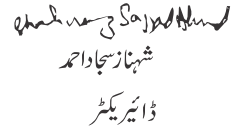 Shahnaz Sajjad Ahmed
شہناز سجاد احمد
ڈائیریکٹر